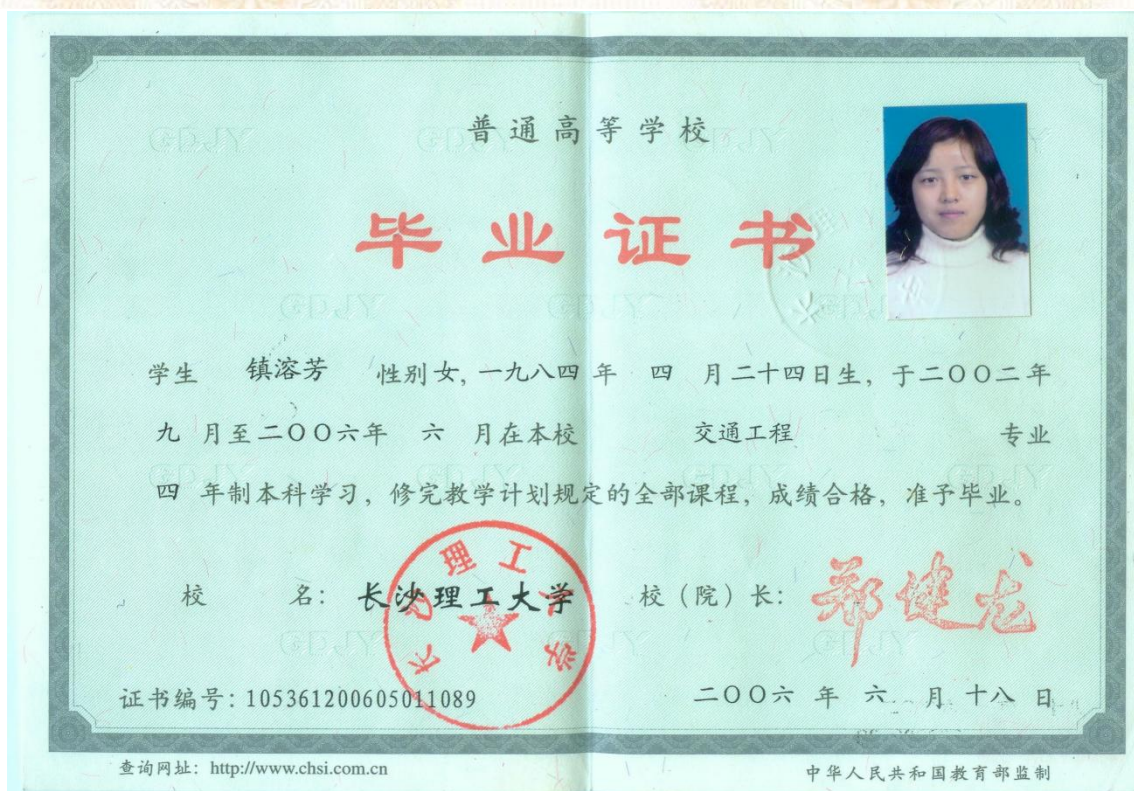 普通高等学校
毕业证书
学生 镇溶芳 性别女,一九八四年 四 月二十四日生,于二〇〇二年
九 月至二〇〇六年 六 月在本校 交通工程 专业
四 年制本科学习,修完教学计划规定的全部课程,成绩合格,准予毕业。
校 名: 长沙理工大学 校(院)长: 郑健龙
长沙理工大学
证书编号: 105361200605011089 二〇〇六 年 六 月 十八 日
查询网址: http://www.chsi.com.cn 中华人民共和国教育部监制
GDJY GDJY GDJY GDJY